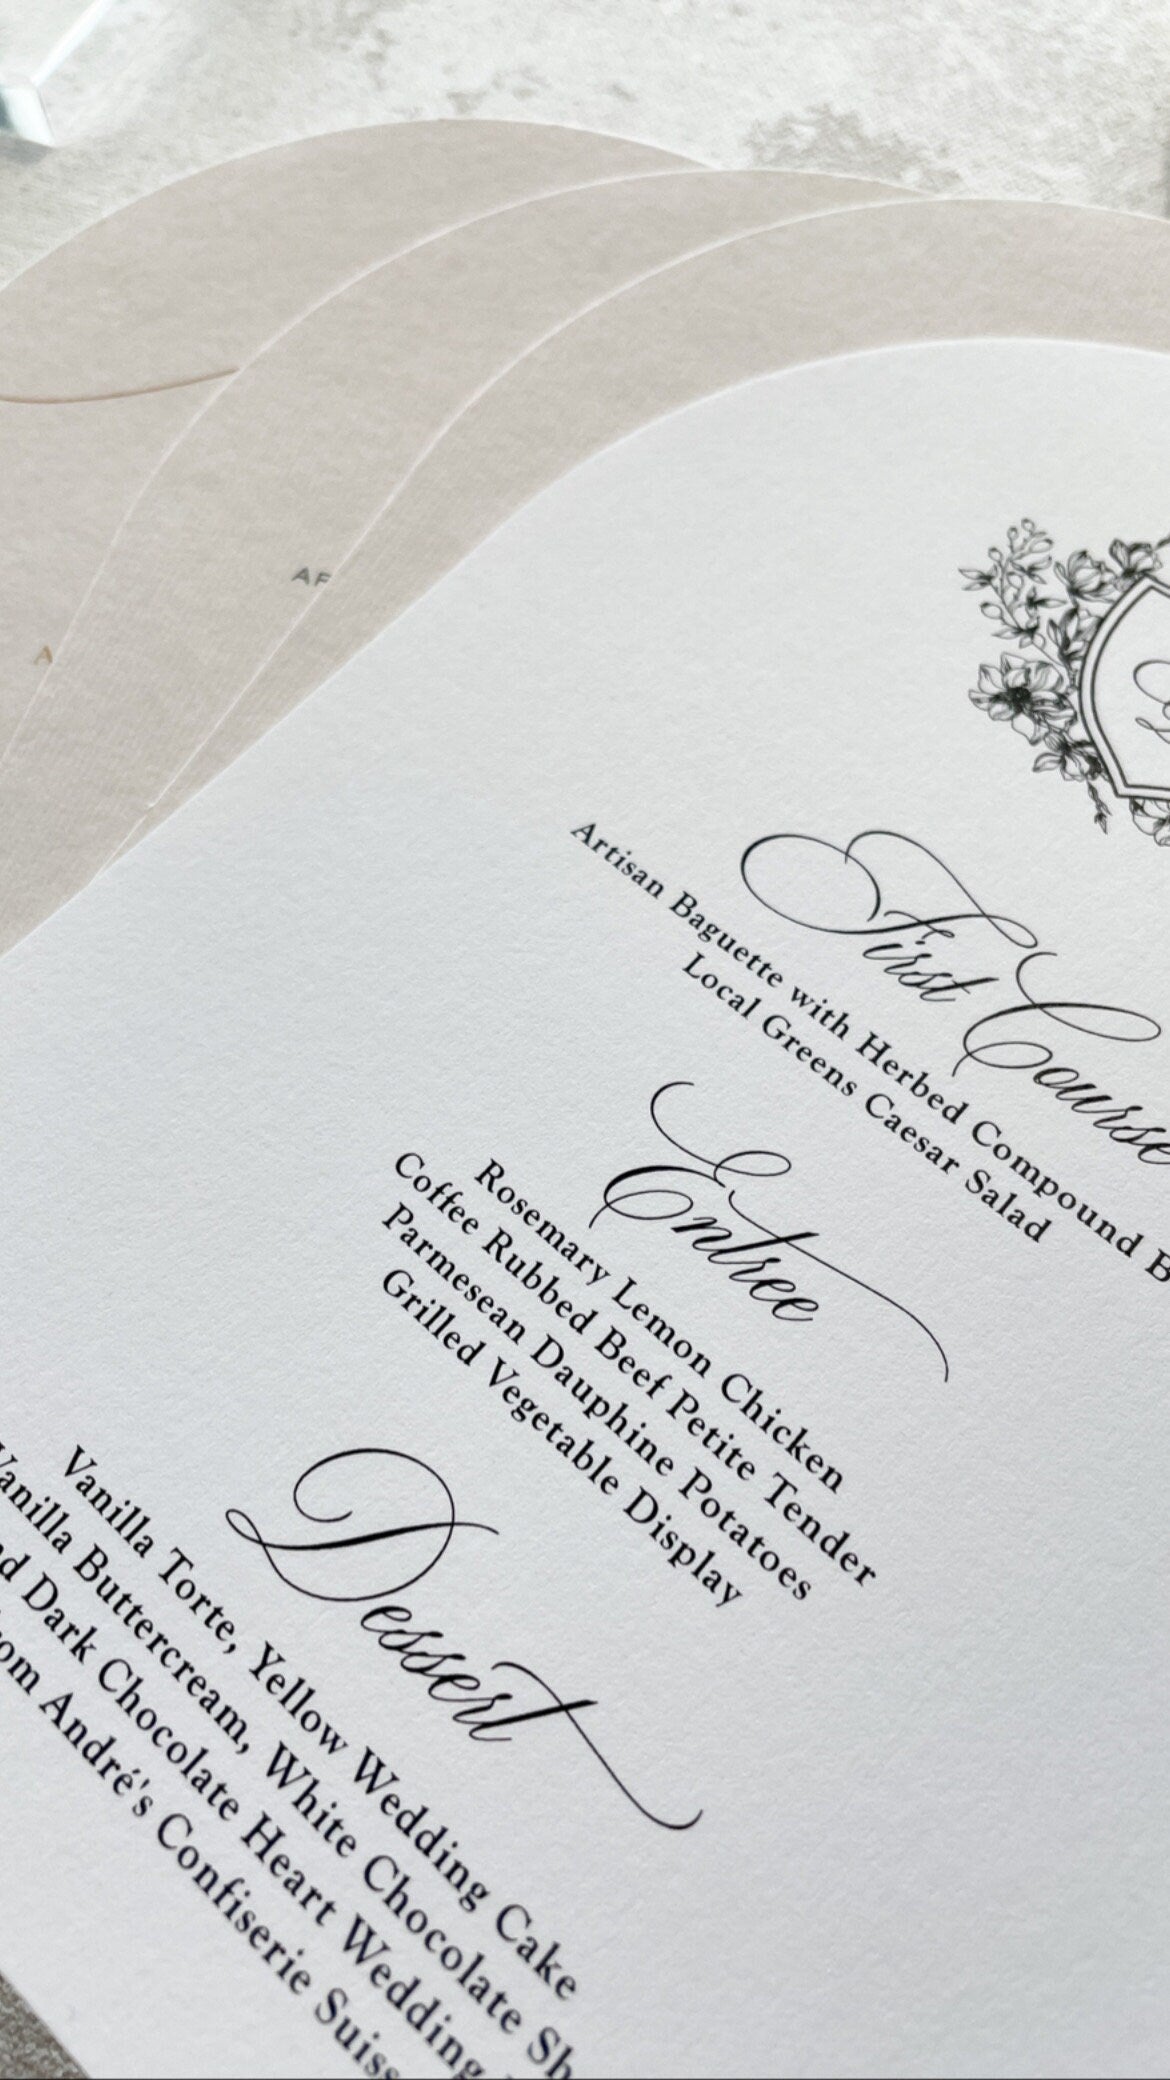 A
AF
First Course
Artisan Baguette with Herbed Compound
Local Greens Caesar Salad
Entree
Rosemary Lemon Chicken
Coffee Rubbed Beef Petite Tender
Parmesean Dauphine Potatoes
Grilled Vegetable Display
Dessert
Vanilla Torte, Yellow Wedding Cake
Vanilla Buttercream, White Chocolate
Dark Chocolate Heart Wedding
André's Confiserie